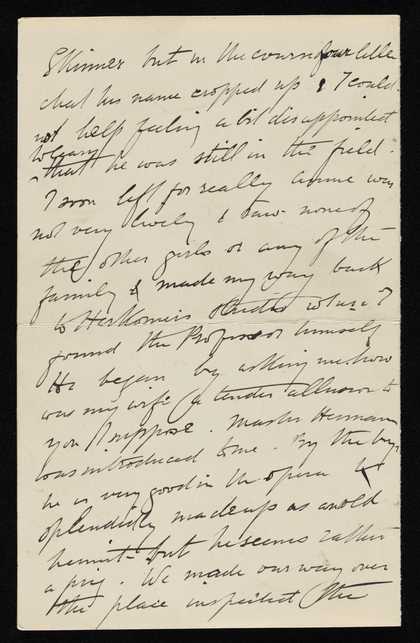 Skinner but in the course of our little
chat his name cropped up & I could
not help feeling a bit disappointed
to learn
that he was still in the field.
I soon left for really Annie was
not very lively & saw none of
the other girls or any of the
family & made my way back
to Herkomer's Studio where I
found the Professor himself
He began by asking me how
was my wife (a tender allusion to
you I suppose. Master Herman
was introduced to me. By the bye
he is very good in the opera &
splendidly made up as an old
hermit - but he seems rather
a prig. We made our way over
the place inspected the